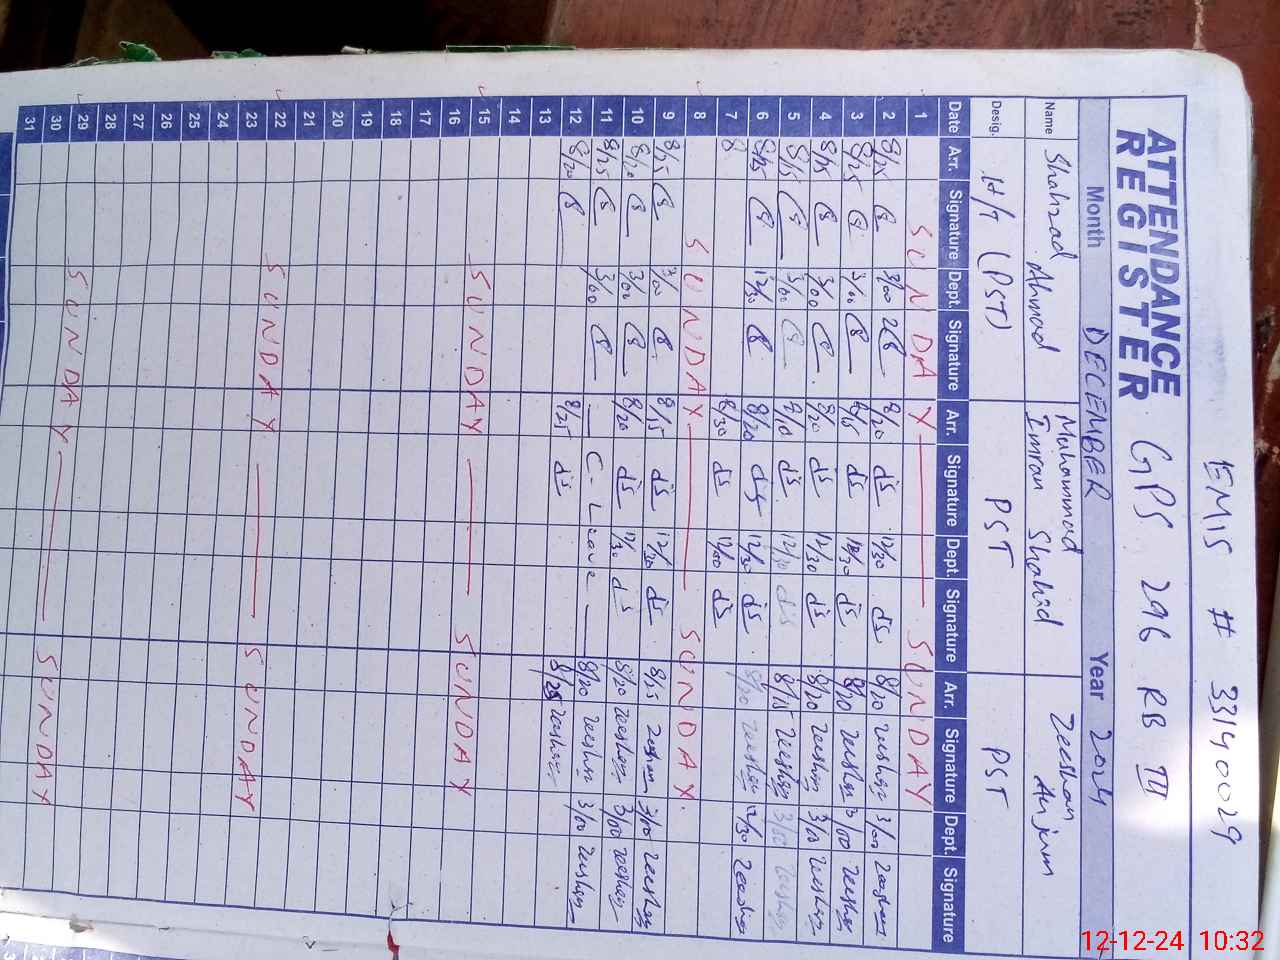 EMIS # 33140029
ATTENDANCE REGISTER GPS 296 RB III
Month DECEMBER Year 2024
Name Shahzad Ahmad Muhammad Imran Shahid Zeeshan Anjum
Desig. H/T (PST) PST PST
Date Arr. Signature Dept. Signature Arr. Signature Dept. Signature Arr. Signature Dept. Signature
1 SUNDAY SUNDAY
2 8/25 3/00 8/20 12/30 8/20 3/00
3 8/25 3/00 8/15 12/30 8/20 3/00
4 8/25 3/00 8/20 12/30 8/20 3/00
5 8/15 3/00 12/30 8/15 3/00
6 8/25 12/30 8/20 12/30 8/20 12/30
7 8 8/30 12/00
8 SUNDAY SUNDAY
9 8/25 3/00 8/15 12/30 8/15 3/00
10 8/20 3/00 8/20 12/30 8/20 3/00
11 8/25 3/00 C-Leave 8/20 3/00
12 8/20 8/25 8/25
13
14
15 SUNDAY SUNDAY
16
17
18
19
20
21
22 SUNDAY SUNDAY
23
24
25
26
27
28
29 SUNDAY SUNDAY
30
31
12-12-24 10:32